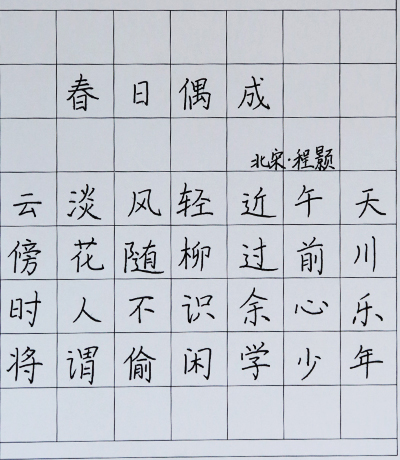 春日偶成
北宋·程颢
云淡风轻近午天
傍花随柳过前川
时人不识余心乐
将谓偷闲学少年